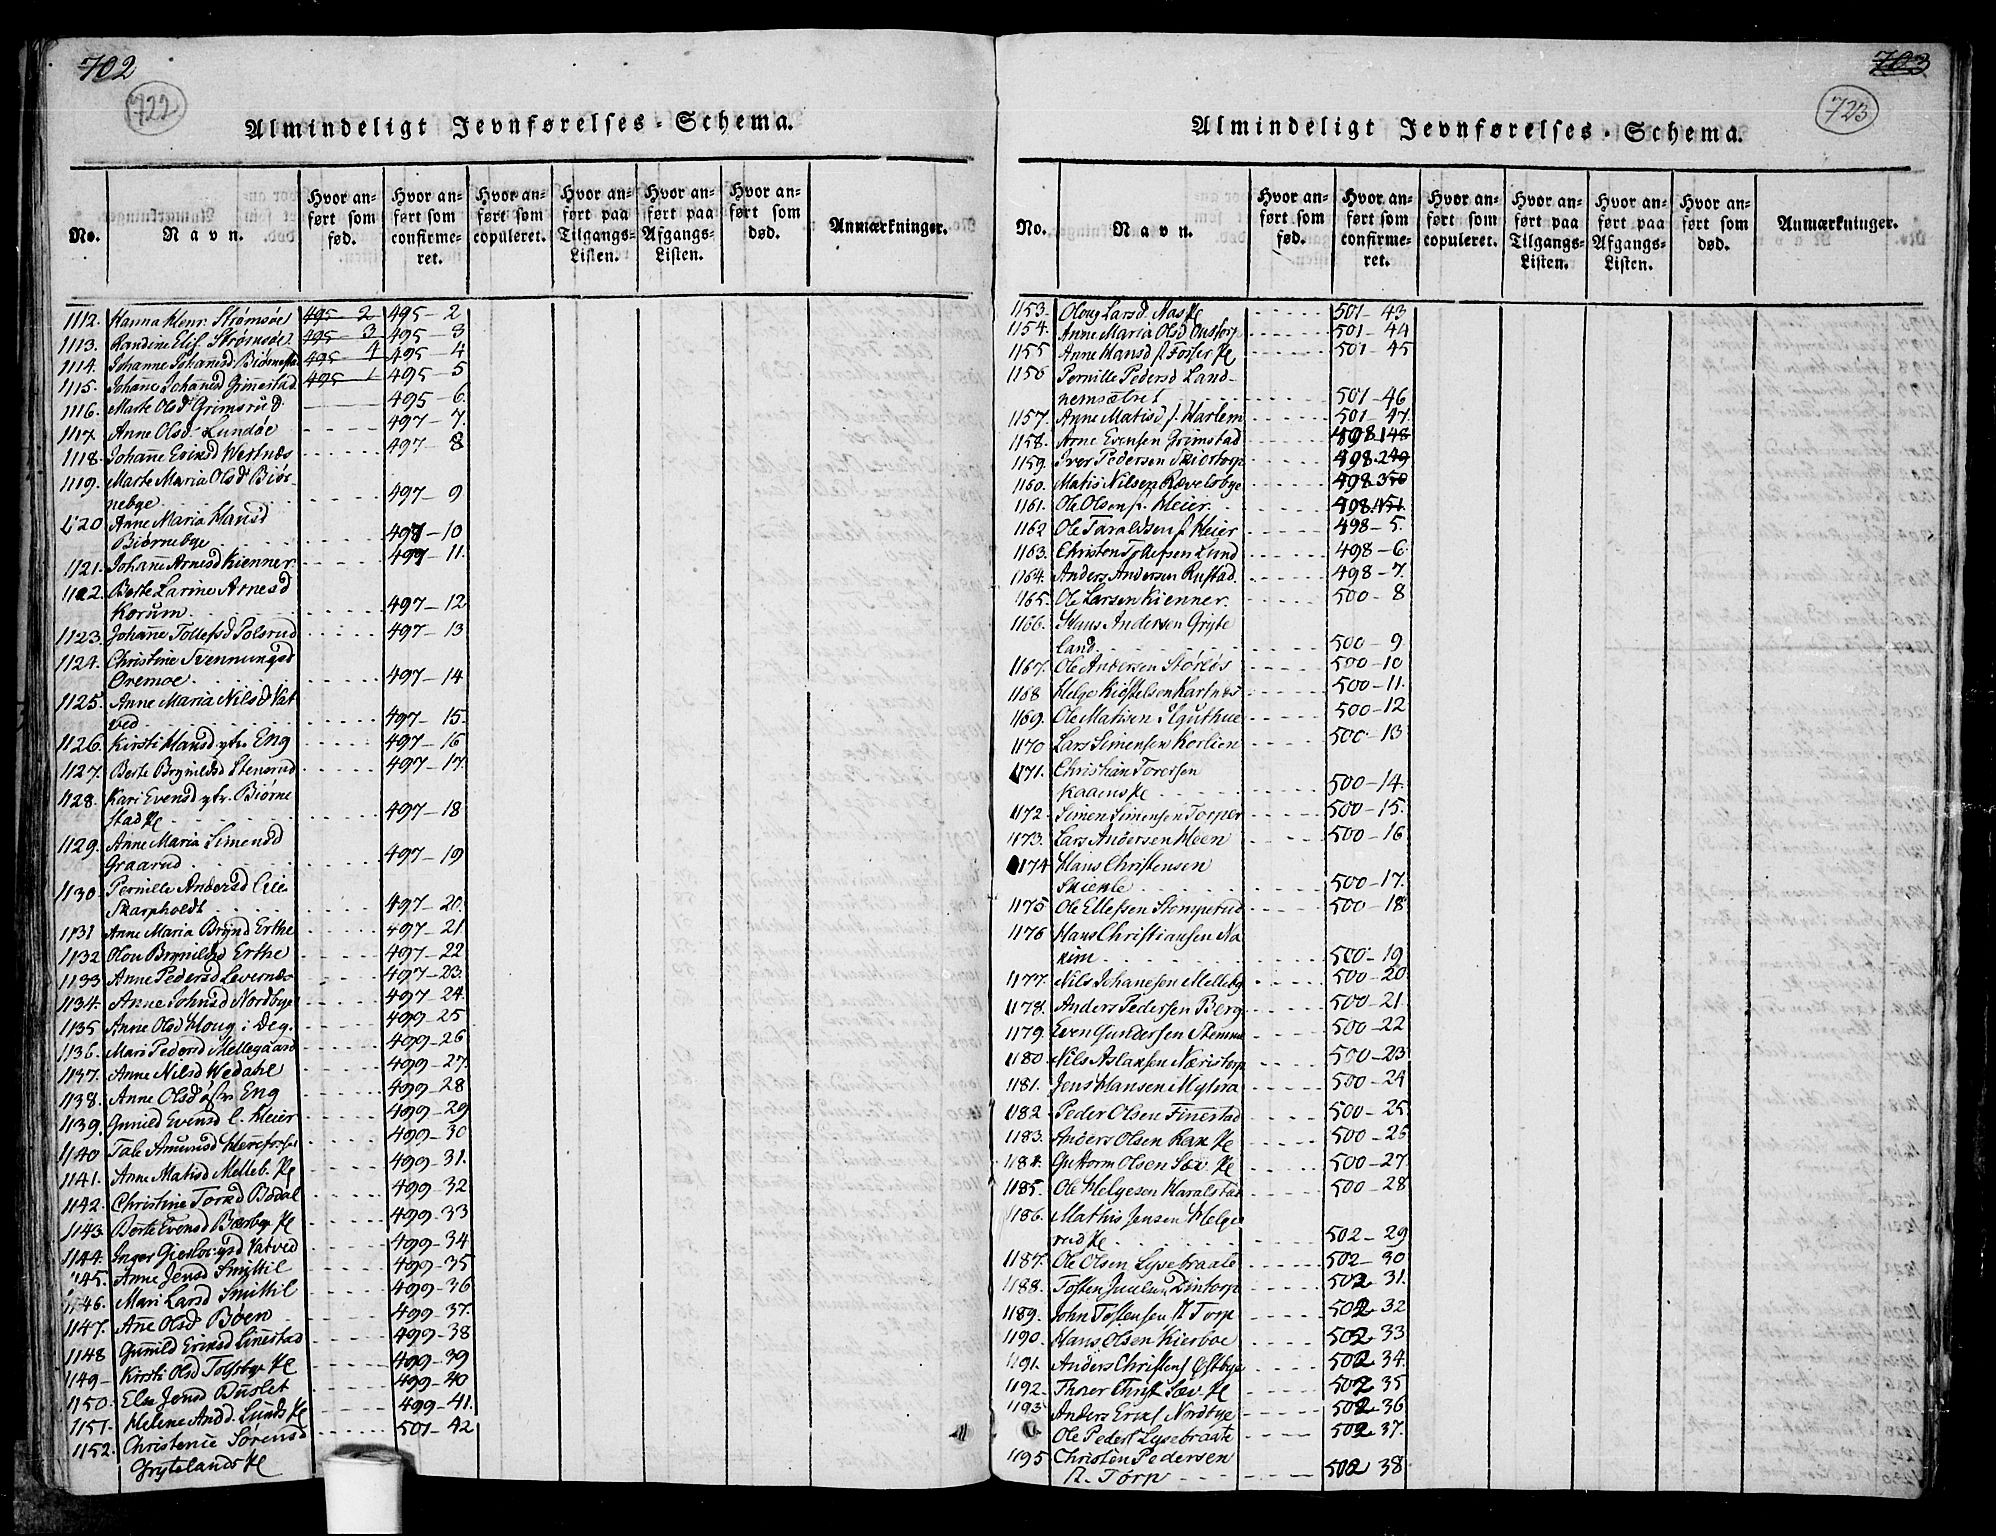 702
722
Almindeligt Jevnførelses-Schema.
No. Navn. Hvor anført som fød. Hvor anført som confirmeret. Hvor anført som copuleret. Hvor anført paa Tilgangs-Listen. Hvor anført paa Afgangs-Listen. Hvor anført som død. Anmærkninger.
1112. Hanna Henr. Strømsøe 495 2 495-2
1113. Randine Elis. Strømsøe 495 3 495-3
1114. Johanne Johanesd. Biørnestad 495 4 495-4
1115. Johane Johanesd Grimestad 495 1 495-5
1116. Marte Olsd Grimsrud 495-6
1117. Anne Olsd Lundøe 497-7.
1118. Johane Ericsd Westnæs 497-8
1119. Marte Maria Olsd Biør-
nebye 497-9
1120 Anne Maria Hansd
Biørnebye 497-10
1121. Johane Arnesd Kienner 497-11.
1122. Berte Larine Arnesd
Korum 497-12
1123. Johane Tollefsd Polsrud 497-13
1124. Christine Svennungsd
Oremoe 497-14
1125. Anne Maria Nilsd Vat
ved 497-15.
1126. Kirsti Hansd ytr. Eng 497-16
1127. Berte Brynildsd Stensrud 497-17
1128. Kari Evensd ytr. Biørne
stad 497-18
1129. Anne Maria Simensd
Graarud 497-19
1130 Pernille Andersd Lie
Skarpholdt 497-20.
1131 Anne Maria Brynd Erthe 497-21.
1132 Olou Brynildsd Erthe 497-22
1133 Anne Pedersd Levernæs 497-23.
1134. Anne Johnsd Nordbye 497-24.
1135 Anne Olsd Houg i Deg. 499-25
1136. Mari Pedersd Mellegaard 499-26
1137. Anne Nilsd Wedahl 499-27.
1138. Anne Olsd østr Eng 499-28
1139. Gunild Evensd l. Heier 499-29
1140 Tale Amundsd 499-30
1141. Anne Matisd Melleb. 499-31.
1142. Christine Torsd Bodal 499-32
1143. Berte Evensd Bærbye 499-33
1144. Inger Vatved 499-34
1145. Anne Jensd Smittil 499-35
1146. Mari Larsd Smittil 499-36
1147. Ane Olsd Bøen 499-37.
1148 Gunild Ericsd Linestad 499-38
1149- Kirsti Olsd Tofsbye 499-39
1150. Else Jensd Buslet 499-40
1151. Helene Andd. Lunds 499-41.
1152. Christence Sørensd 501-42
Grytelands
703
723
Almindeligt Jevnførelses-Schema.
No. Navn. Hvor anført som fød. Hvor anført som confirmeret. Hvor anført som copuleret. Hvor anført paa Tilgangs-Listen. Hvor anført paa Afgangs-Listen. Hvor anført som død. Anmærkninger.
1153. Oloug Larsd. Aas 501-43
1154. Anne Maria Olsd Onstorp 501-44
1155 Anne Hansd s. Fosser 501-45
1156 Pernille Pedersd Land-
nemsætret 501-46
1157. Anne Matisd s. Harlem 501-47.
1158. Arne Evensen Grimstad 498.1 48
1159. Iver Pedersen Skiortorp 498.2 49
1160. Matis Nilsen Rævelsbye 498.3 50
1161. Ole Olsen s. Heier 498. 51
1162 Ole Taraldsen s Heier 498-5.
1163. Christen Lund 498-6.
1164. Anders Andersen Rustad 498-7.
1165. Ole Larsen Kienner. 500-8
1166. Hans Andersen Gryte
land 500-9
1167. Ole Andersen Størløs 500-10
1168 Helge Kiøstelsen Kartnæs 500-11.
1169. Ole Matisen Slguthue 500-12
1170 Lars Simensen Korlien 500-13
1171. Christian Torersen
Kaaens 500-14
1172- Simen Simensen Torper 500-15.
1173. Lars Andersen Heen 500-16
1174 Hans Christensen
Skiekle 500-17.
1175 Ole Ellefsen Stomperud 500-18
1176 Hans Christiansen Na
kim 500-19
1177. Nils Johanesen Mellebye 500-20
1178. Anders Pedersen Berg 500-21
1179. Even Gundersen Stemme 500-22
1180. Nils Aslaksen Næristorp 500-23
1181. Jens Hansen Myhra 500-24
1182. Peder Olsen Finestad 500-25
1183. Anders Olsen Rak 500-26
1184. Guttorm Olsen Sæv. 500-27
1185. Ole Helgesen Haralstad 500-28
1186. Mathis Jensen Helge
rud 502-29
1187. Ole Olsen Lysebraate 502-30
1188. Tosten Juulsen Dintorp 502 31.
1189. John Tostensen N. Torp 502 32
1190 Hans Olsen Kierboe 502 33
1191. Anders Christens Østbye 502 34.
1192. Thorer Christ Sæv. 502 35
1193 Anders Erics Nordbye 502 36
Ole Peders Lysebraate 502 37.
1195 Christen Pedersen
N. Torp 502 38